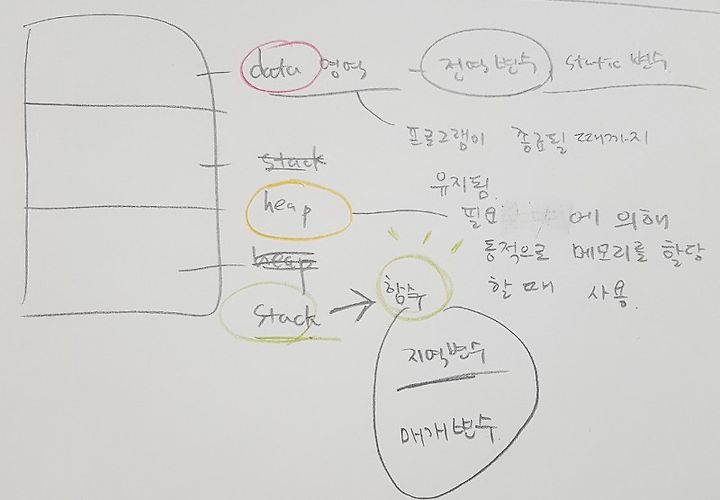 data 영역 - 전역변수 static 변수
프로그램이 종료될 때까지
유지됨
stack
heap
필요에 의해
동적으로 메모리를 할당
할 때 사용
heap
stack → 함수
지역변수
매개변수